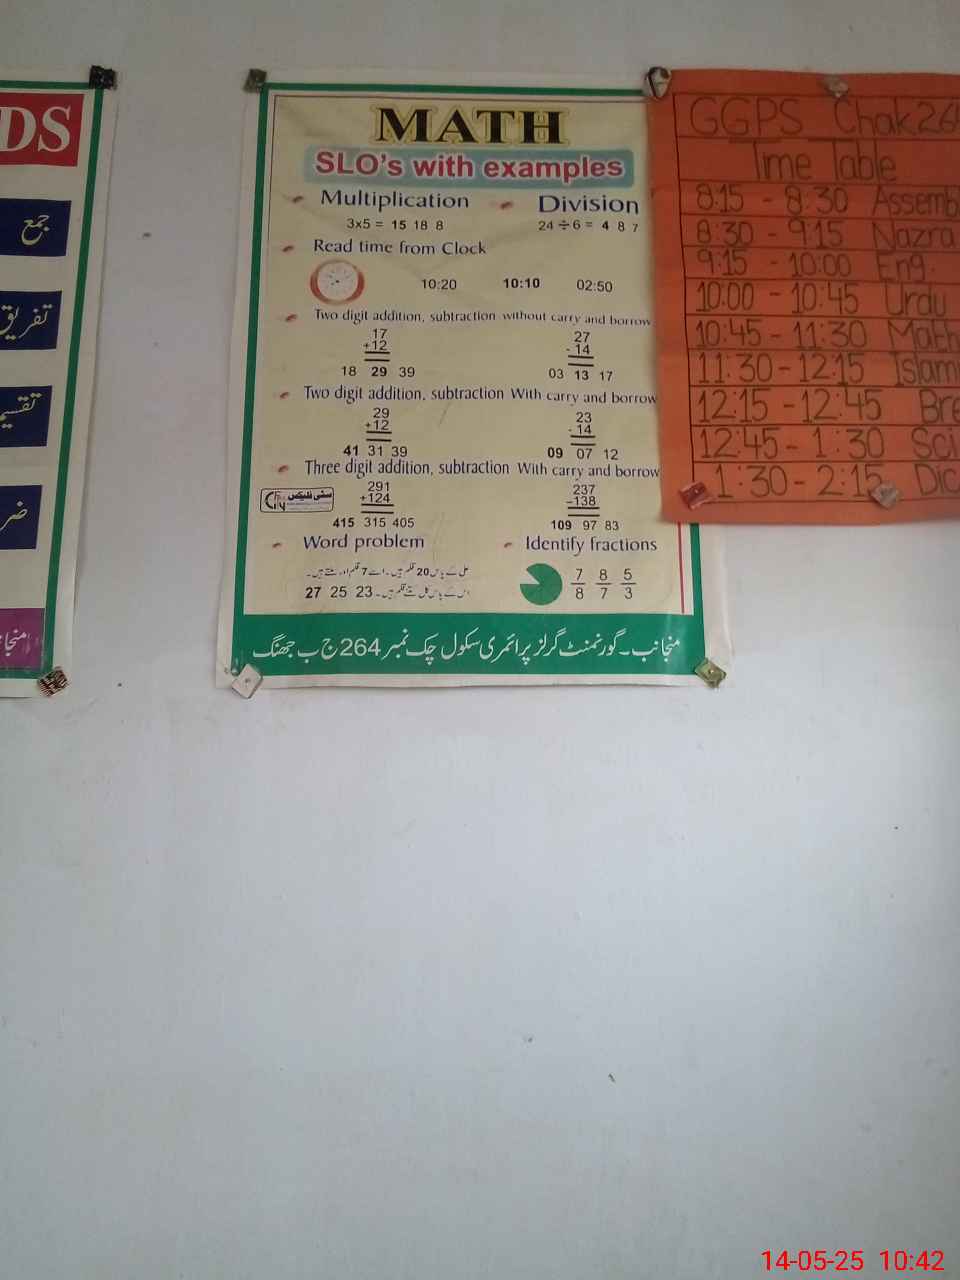 DS
جمع
تفریق
تقسیم
ضر
منجا
MATH
SLO's with examples
Multiplication
3x5 = 15 18 8
Division
24 ÷ 6 = 4 8 7
Read time from Clock
10:20 10:10 02:50
Two digit addition, subtraction without carry and borrow
17
+12
18 29 39
27
- 14
03 13 17
Two digit addition, subtraction With carry and borrow
29
+12
41 31 39
23
- 14
09 07 12
Three digit addition, subtraction With carry and borrow
City سٹی فلیکس
291
+124
415 315 405
237
-138
109 97 83
Word problem
علی کے پاس 20 قلم ہیں۔ اسے 7 قلم اور ملتے ہیں۔
اس کے پاس کل کتنے قلم ہیں۔ 23 25 27
Identify fractions
7 8 5
8 7 3
منجانب۔ گورنمنٹ گرلز پرائمری سکول چک نمبر 264 ج ب جھنگ
GGPS Chak 26
Time Table
8:15 - 8:30 Assemb
8:30 - 9:15 Nazra
9:15 - 10:00 Eng.
10:00 - 10:45 Urdu
10:45 - 11:30 Math
11:30 - 12:15 Islam
12:15 - 12:45 Bre
12:45 - 1:30 Sci
1:30 - 2:15 Dic
14-05-25 10:42